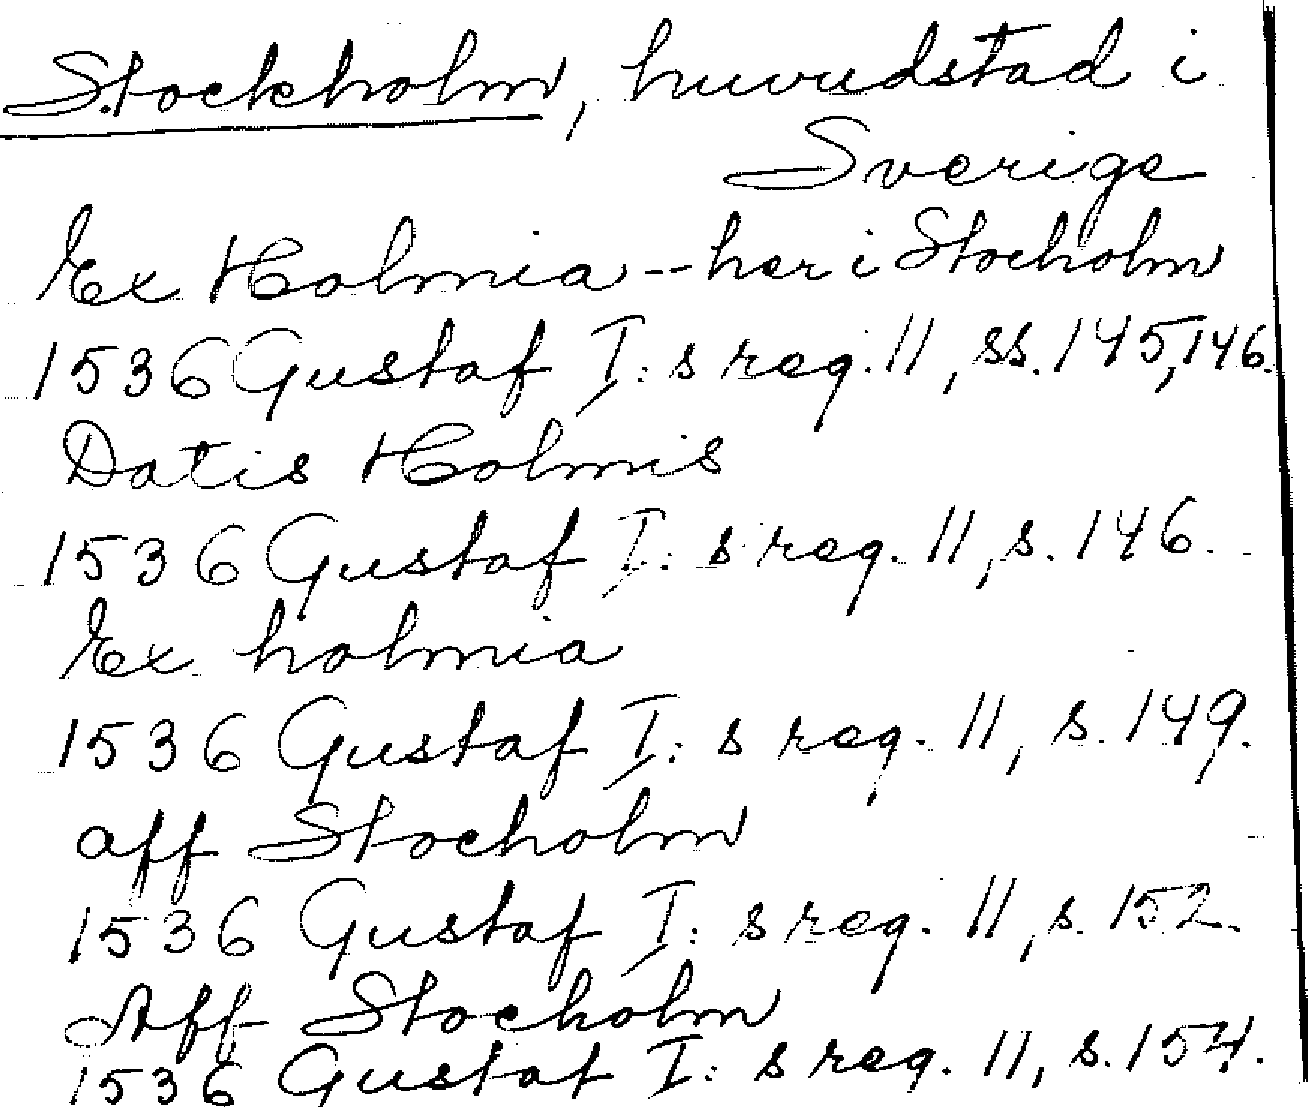 Stockholm, huvudstad i
Sverige
Ex Holmia -- her i Stocholm
1536 Gustaf I:s reg. 11, ss. 145, 146.
Datis Holmis
1536 Gustaf I:s reg. 11, s. 146.
Ex holmia
1536 Gustaf I:s reg. 11, s. 149.
aff Stocholm
1536 Gustaf I:s reg. 11, s. 152.
Aff Stocholm
1536 Gustaf I:s reg. 11, s. 154.